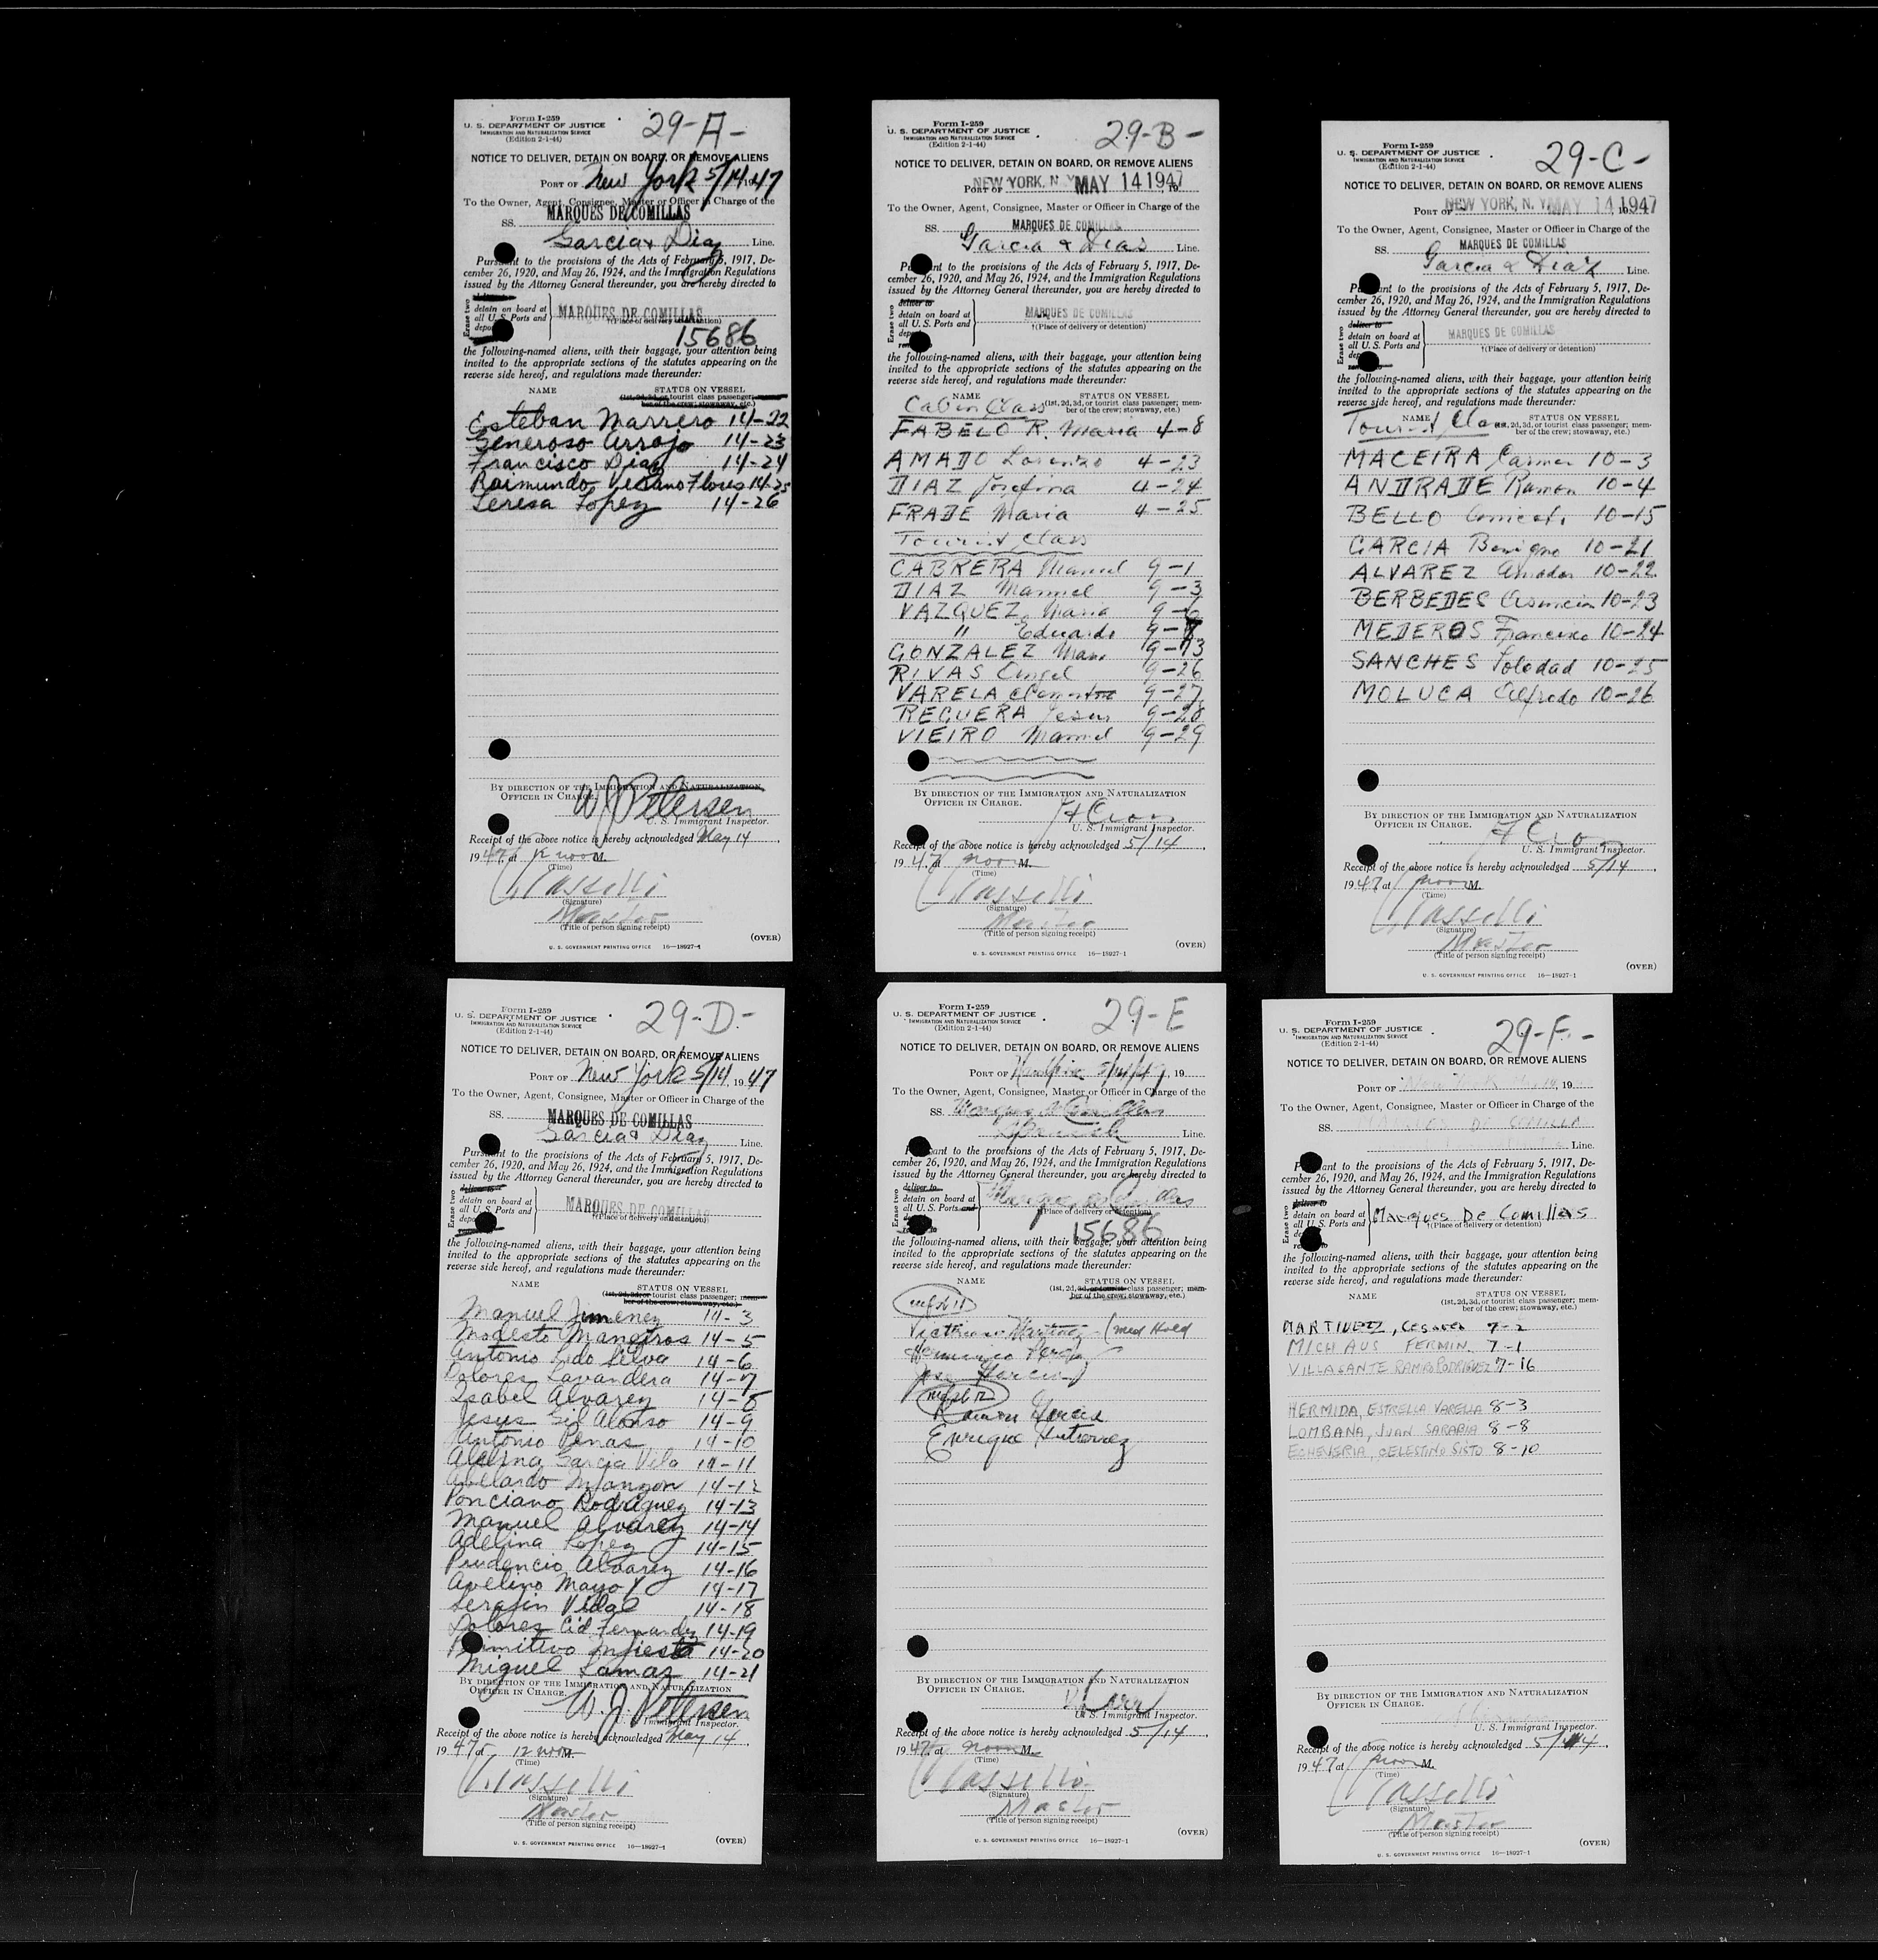 Form I-259
U. S. DEPARTMENT OF JUSTICE
IMMIGRATION AND NATURALIZATION SERVICE
(Edition 2-1-44)
29-A-
NOTICE TO DELIVER, DETAIN ON BOARD, OR REMOVE ALIENS
PORT OF New York 5/14 1947
To the Owner, Agent, Consignee, Master or Officer in Charge of the
SS. MARQUES DE COMILLAS
Garcia & Diaz Line.
Pursuant to the provisions of the Acts of February 5, 1917, De-
cember 26, 1920, and May 26, 1924, and the Immigration Regulations
issued by the Attorney General thereunder, you are hereby directed to
Erase two
detain on board at
all U. S. Ports and
MARQUES DE COMILLAS
†(Place of delivery or detention)
15686
the following-named aliens, with their baggage, your attention being
invited to the appropriate sections of the statutes appearing on the
reverse side hereof, and regulations made thereunder:
NAME STATUS ON VESSEL
(1st, 2d, 3d, or tourist class passenger;
ber of the crew; stowaway, etc.)
Esteban Marrero 14-22
Generoso Arrojo 14-23
Francisco Diaz 14-24
Raimundo Flores 14-25
Teresa Lopez 14-26
BY DIRECTION OF THE IMMIGRATION AND NATURALIZATION
OFFICER IN CHARGE.
W J Petersen
U. S. Immigrant Inspector.
Receipt of the above notice is hereby acknowledged May 14,
1947, at 12 noon M.
(Time)
(Signature)
Master
(Title of person signing receipt)
(OVER)
U. S. GOVERNMENT PRINTING OFFICE 16—18927-1
Form I-259
U. S. DEPARTMENT OF JUSTICE
IMMIGRATION AND NATURALIZATION SERVICE
(Edition 2-1-44)
29-B-
NOTICE TO DELIVER, DETAIN ON BOARD, OR REMOVE ALIENS
PORT OF NEW YORK, N. Y. MAY 14 1947, 19
To the Owner, Agent, Consignee, Master or Officer in Charge of the
SS. MARQUES DE COMILLAS
Garcia & Dias Line.
Pursuant to the provisions of the Acts of February 5, 1917, De-
cember 26, 1920, and May 26, 1924, and the Immigration Regulations
issued by the Attorney General thereunder, you are hereby directed to
Erase two
deliver to
detain on board at
all U. S. Ports and
MARQUES DE COMILLAS
†(Place of delivery or detention)
the following-named aliens, with their baggage, your attention being
invited to the appropriate sections of the statutes appearing on the
reverse side hereof, and regulations made thereunder:
NAME STATUS ON VESSEL
Cabin Class (1st, 2d, 3d, or tourist class passenger; mem-
ber of the crew; stowaway, etc.)
FABELO R. Maria 4-8
AMADO Lorenzo 4-23
DIAZ Josefina 4-24
FRADE Maria 4-25
Tourist Class
CABRERA Manuel 9-1
DIAZ Manuel 9-3
VAZQUEZ Maria 9-6
" Eduardo 9-
GONZALEZ 9-13
RIVAS Angel 9-26
VARELA 9-27
REGUERA Jesus 9-28
VIEIRO Manuel 9-29
BY DIRECTION OF THE IMMIGRATION AND NATURALIZATION
OFFICER IN CHARGE.
U. S. Immigrant Inspector.
Receipt of the above notice is hereby acknowledged 5/14,
1947 noon M.
(Time)
(Signature)
Master
(Title of person signing receipt)
(OVER)
U. S. GOVERNMENT PRINTING OFFICE 16—18927-1
Form I-259
U. S. DEPARTMENT OF JUSTICE
IMMIGRATION AND NATURALIZATION SERVICE
(Edition 2-1-44)
29-C-
NOTICE TO DELIVER, DETAIN ON BOARD, OR REMOVE ALIENS
PORT OF NEW YORK, N. Y. MAY 14 1947
To the Owner, Agent, Consignee, Master or Officer in Charge of the
SS. MARQUES DE COMILLAS
Garcia & Diaz Line.
Pursuant to the provisions of the Acts of February 5, 1917, De-
cember 26, 1920, and May 26, 1924, and the Immigration Regulations
issued by the Attorney General thereunder, you are hereby directed to
Erase two
deliver to
detain on board at
all U. S. Ports and
MARQUES DE COMILLAS
†(Place of delivery or detention)
the following-named aliens, with their baggage, your attention being
invited to the appropriate sections of the statutes appearing on the
reverse side hereof, and regulations made thereunder:
NAME STATUS ON VESSEL
Tourist Class 2d, 3d, or tourist class passenger; mem-
ber of the crew; stowaway, etc.)
MACEIRA Carmen 10-3
ANDRADE Ramon 10-4
BELLO 10-15
GARCIA Benigno 10-21
ALVAREZ Amador 10-22
BERBEDES Asuncion 10-23
MEDEROS Francisco 10-24
SANCHES Soledad 10-25
MOLUCA Alfredo 10-26
BY DIRECTION OF THE IMMIGRATION AND NATURALIZATION
OFFICER IN CHARGE.
U. S. Immigrant Inspector.
Receipt of the above notice is hereby acknowledged 5/14,
1947 at noon M.
(Time)
(Signature)
Master
(Title of person signing receipt)
(OVER)
U. S. GOVERNMENT PRINTING OFFICE 16—18927-1
Form I-259
U. S. DEPARTMENT OF JUSTICE
IMMIGRATION AND NATURALIZATION SERVICE
(Edition 2-1-44)
29-D-
NOTICE TO DELIVER, DETAIN ON BOARD, OR REMOVE ALIENS
PORT OF New York 5/14, 1947
To the Owner, Agent, Consignee, Master or Officer in Charge of the
SS. MARQUES DE COMILLAS
Garcia & Diaz Line.
Pursuant to the provisions of the Acts of February 5, 1917, De-
cember 26, 1920, and May 26, 1924, and the Immigration Regulations
issued by the Attorney General thereunder, you are hereby directed to
Erase two
deliver to
detain on board at
all U. S. Ports and
MARQUES DE COMILLAS
†(Place of delivery or detention)
the following-named aliens, with their baggage, your attention being
invited to the appropriate sections of the statutes appearing on the
reverse side hereof, and regulations made thereunder:
NAME STATUS ON VESSEL
(1st, 2d, 3d, or tourist class passenger; mem-
ber of the crew; stowaway, etc.)
Manuel Jimenez 14-3
Modesto 14-5
Antonio Silva 14-6
Dolores Lavandera 14-7
Isabel Alvarez 14-8
Jesus Gil Alonso 14-9
Antonio Penas 14-10
Garcia Vila 14-11
Abelardo Manzon 14-12
Ponciano Rodriguez 14-13
Manuel Alvarez 14-14
Adelina Lopez 14-15
Prudencio Alvarez 14-16
Avelino Mayo Y 14-17
Serafin Vidal 14-18
Dolores Cid Fernandez 14-19
Primitivo 14-20
Miguel Lamas 14-21
BY DIRECTION OF THE IMMIGRATION AND NATURALIZATION
OFFICER IN CHARGE.
W. J. Petersen
Immigrant Inspector.
Receipt of the above notice is hereby acknowledged May 14,
1947 at 12 noon M.
(Time)
(Signature)
Master
(Title of person signing receipt)
(OVER)
U. S. GOVERNMENT PRINTING OFFICE 16—18927-1
Form I-259
U. S. DEPARTMENT OF JUSTICE
IMMIGRATION AND NATURALIZATION SERVICE
(Edition 2-1-44)
29-E
NOTICE TO DELIVER, DETAIN ON BOARD, OR REMOVE ALIENS
PORT OF 5/14/47, 19
To the Owner, Agent, Consignee, Master or Officer in Charge of the
SS. Marques de Comillas
Spanish Line.
Pursuant to the provisions of the Acts of February 5, 1917, De-
cember 26, 1920, and May 26, 1924, and the Immigration Regulations
issued by the Attorney General thereunder, you are hereby directed to
Erase two
deliver to
detain on board at
all U. S. Ports and
Marques de Comillas
†(Place of delivery or detention)
15686
the following-named aliens, with their baggage, your attention being
invited to the appropriate sections of the statutes appearing on the
reverse side hereof, and regulations made thereunder:
NAME STATUS ON VESSEL
(1st, 2d, 3d, or tourist class passenger; mem-
ber of the crew; stowaway, etc.)
Martinez (med Hold
Jose Garcia
Ramon Garcia
Enrique Gutierrez
BY DIRECTION OF THE IMMIGRATION AND NATURALIZATION
OFFICER IN CHARGE.
U. S. Immigrant Inspector.
Receipt of the above notice is hereby acknowledged 5/14,
1947, at noon M.
(Time)
(Signature)
Master
(Title of person signing receipt)
(OVER)
U. S. GOVERNMENT PRINTING OFFICE 16—18927-1
Form I-259
U. S. DEPARTMENT OF JUSTICE
IMMIGRATION AND NATURALIZATION SERVICE
(Edition 2-1-44)
29-F-
NOTICE TO DELIVER, DETAIN ON BOARD, OR REMOVE ALIENS
PORT OF New York, 19
To the Owner, Agent, Consignee, Master or Officer in Charge of the
SS. MARQUES DE COMILLA
Line.
Pursuant to the provisions of the Acts of February 5, 1917, De-
cember 26, 1920, and May 26, 1924, and the Immigration Regulations
issued by the Attorney General thereunder, you are hereby directed to
Erase two
deliver to
detain on board at
all U. S. Ports and
Marques De Comillas
†(Place of delivery or detention)
the following-named aliens, with their baggage, your attention being
invited to the appropriate sections of the statutes appearing on the
reverse side hereof, and regulations made thereunder:
NAME STATUS ON VESSEL
(1st, 2d, 3d, or tourist class passenger; mem-
ber of the crew; stowaway, etc.)
MARTINEZ, 7-2
MICHAUS FERMIN 7-1
VILLASANTE RAMOS RODRIGUEZ 7-16
HERMIDA, ESTRELLA VARELLA 8-3
LOMBANA, JUAN SARABIA 8-8
ECHEVERIA, CELESTINO SISTO 8-10
BY DIRECTION OF THE IMMIGRATION AND NATURALIZATION
OFFICER IN CHARGE.
U. S. Immigrant Inspector.
Receipt of the above notice is hereby acknowledged 5/14,
1947 at noon M.
(Time)
(Signature)
Master
(Title of person signing receipt)
(OVER)
U. S. GOVERNMENT PRINTING OFFICE 16—18927-1